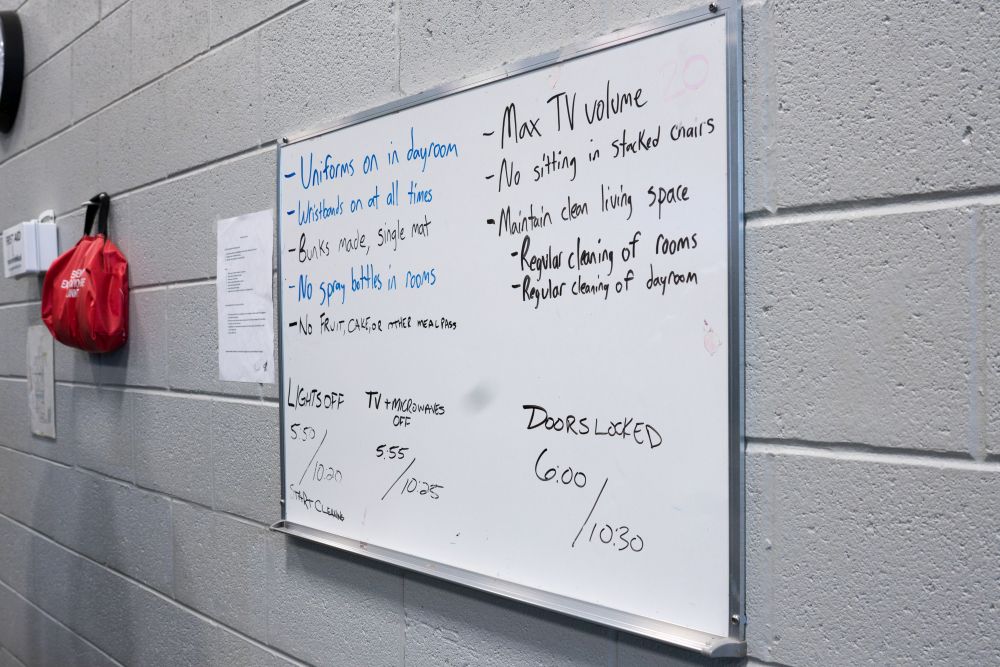 - Uniforms on in dayroom
- Wristbands on at all times
- Bunks made, single mat
- No spray bottles in rooms
- No FRUIT, CAKE, OR OTHER MEAL PASS
- Max TV volume
- No sitting in stacked chairs
- Maintain clean living space
- Regular cleaning of rooms
- Regular cleaning of dayroom
20
LIGHTS OFF
5:50
/10:20
START CLEANING
TV + MICROWAVES
OFF
5:55
/10:25
DOORS LOCKED
6:00
/10:30
FIRST AID